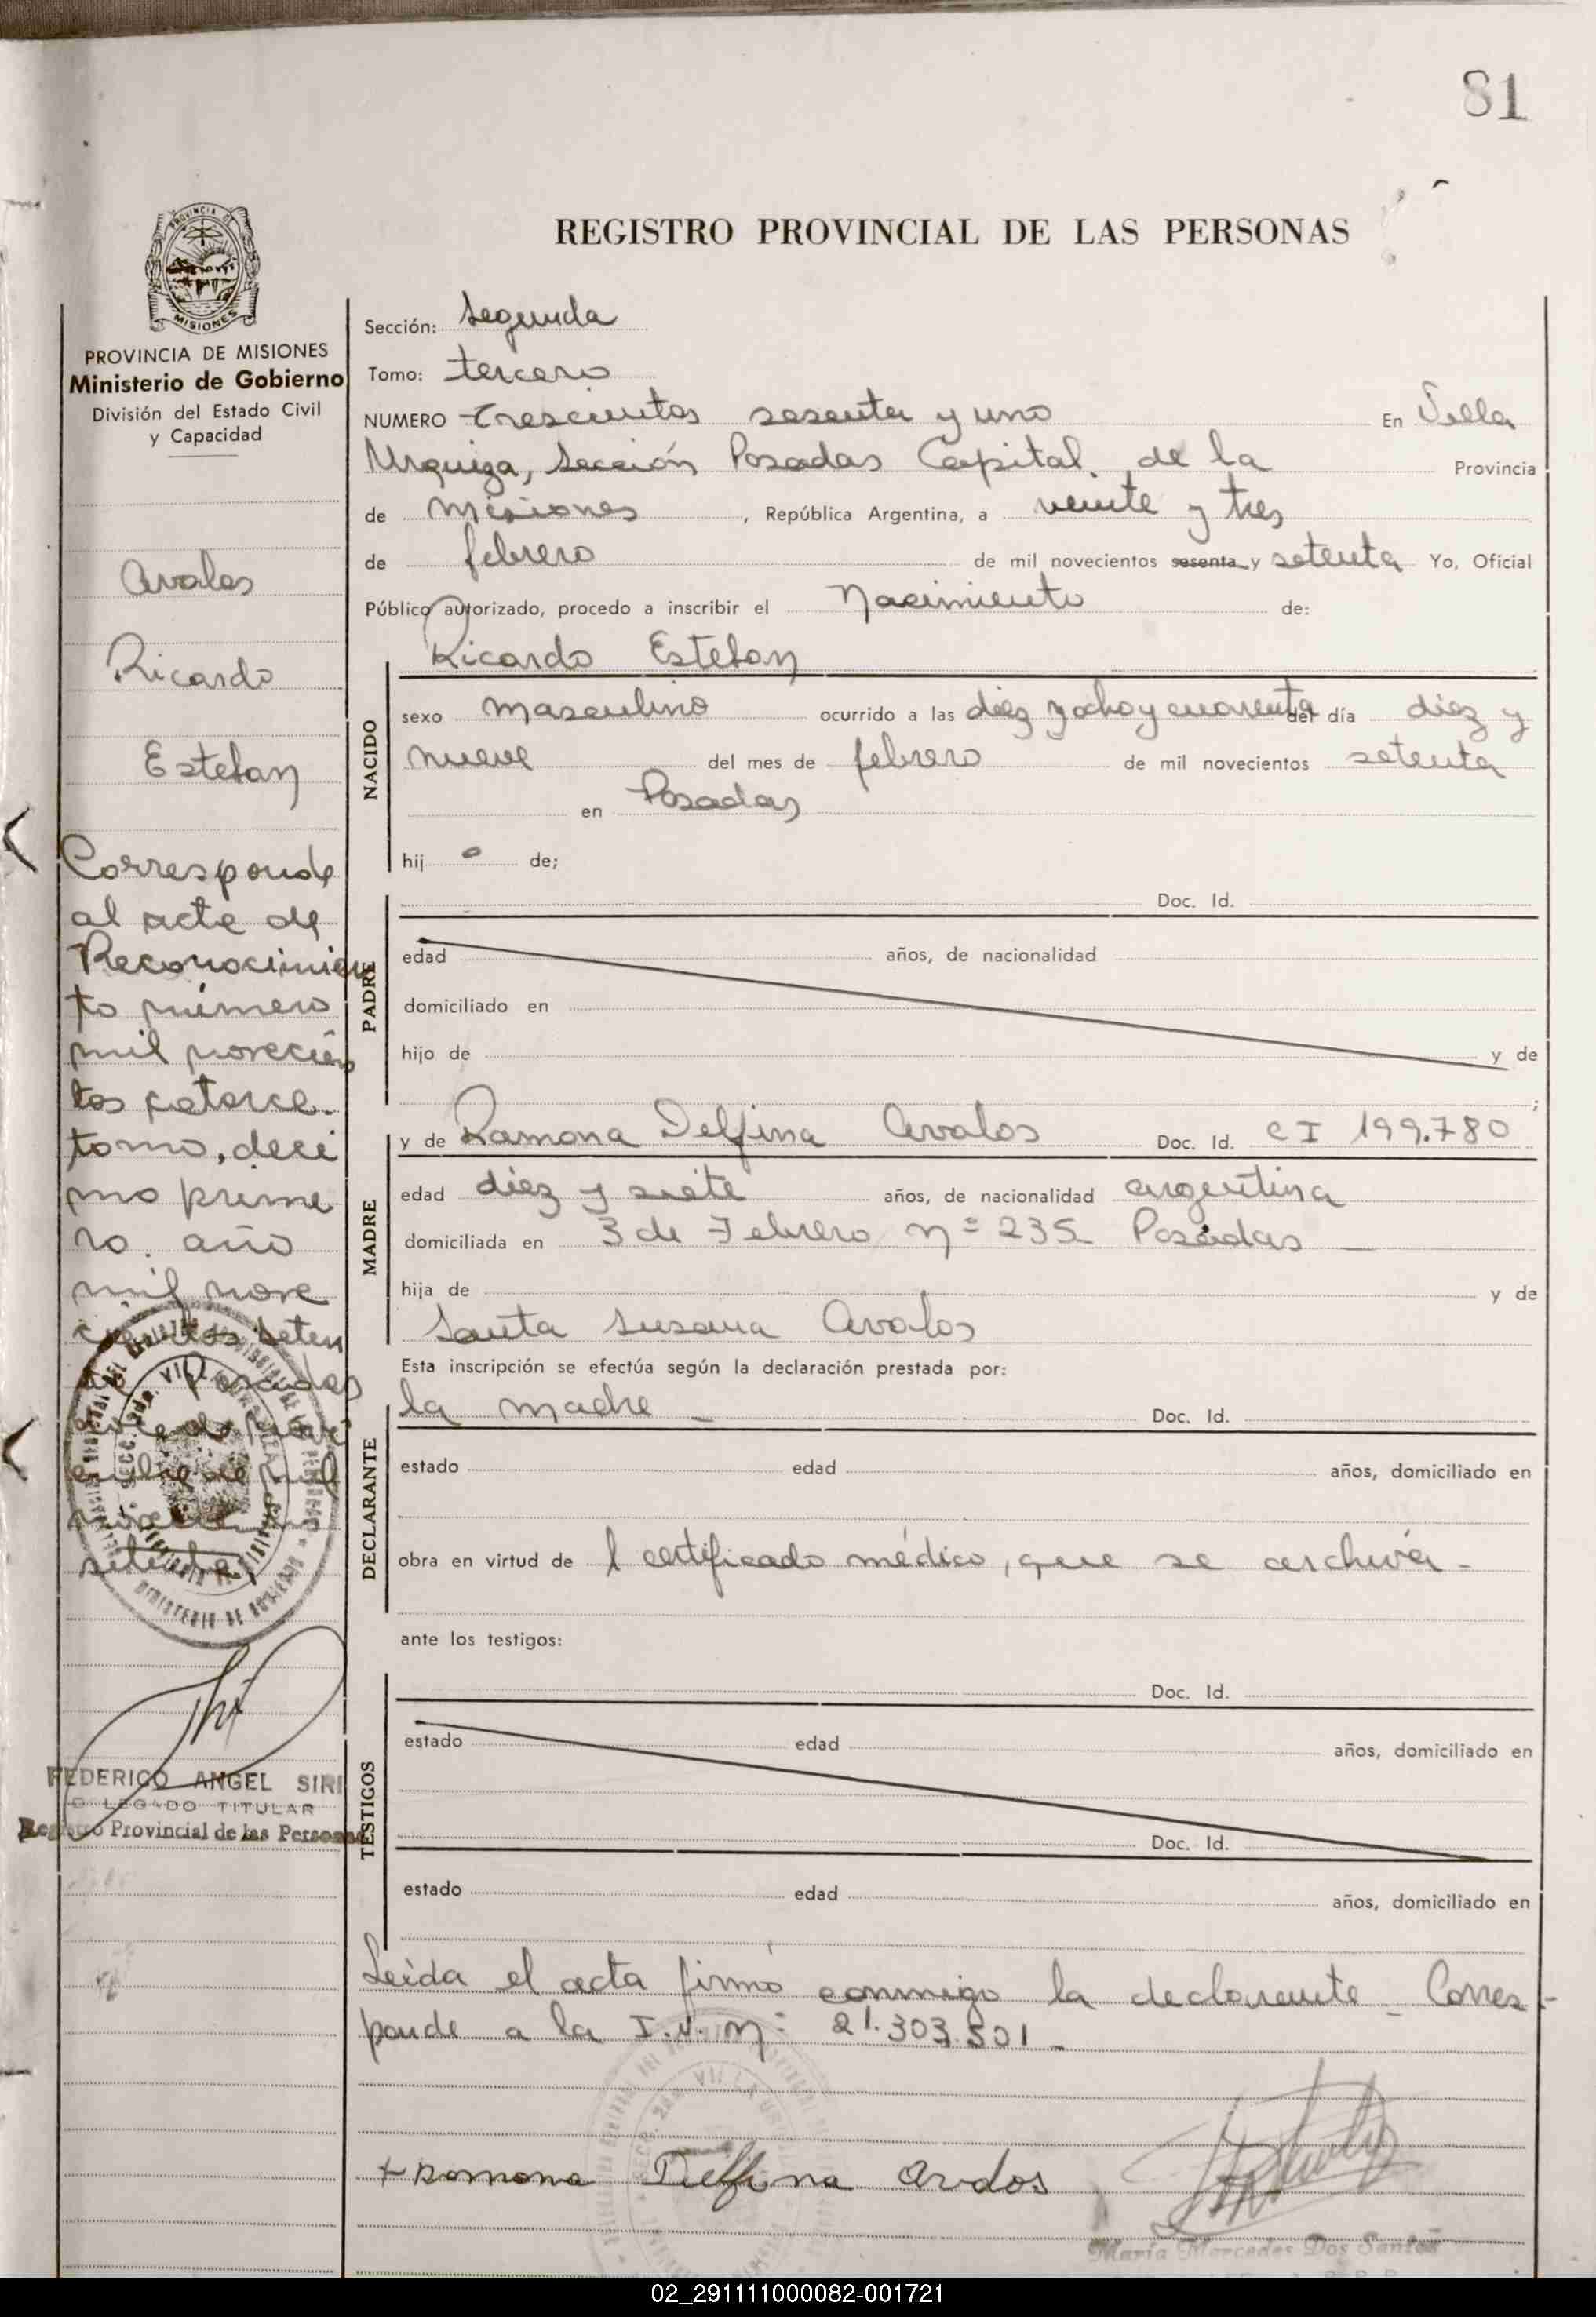 81
REGISTRO PROVINCIAL DE LAS PERSONAS
PROVINCIA DE
MISIONES
PROVINCIA DE MISIONES
Ministerio de Gobierno
División del Estado Civil
y Capacidad
Avalos
Ricardo
Esteban
Corresponde
al acta de
Reconocimien
to número
mil novecien
tos catorce.
tomo, deci
mo prime
ro. año
mil nove
cientos seten
Posadas
de
de mil
setenta
FEDERICO ANGEL SIRI
DELEGADO TITULAR
Registro Provincial de las Personas
Sección: Segunda
Tomo: tercero
NUMERO trescientos sesenta y uno En Villa
Urquiza, Sección Posadas Capital de la Provincia
de Misiones, República Argentina, a veinte y tres
de febrero de mil novecientos sesenta y setenta Yo, Oficial
Público autorizado, procedo a inscribir el Nacimiento de:
Ricardo Esteban
NACIDO
sexo masculino ocurrido a las diez y ocho y cuarenta del día diez y
nueve del mes de febrero de mil novecientos setenta
en Posadas
hij o de;
PADRE
Doc. Id.
edad años, de nacionalidad
domiciliado en
hijo de y de
;
MADRE
y de Ramona Delfina Avalos Doc. Id. CI 199.780
edad diez y siete años, de nacionalidad argentina
domiciliada en 3 de Febrero nº 235 Posadas
hija de y de
Santa Susana Avalos
Esta inscripción se efectúa según la declaración prestada por:
DECLARANTE
la madre Doc. Id.
estado edad años, domiciliado en
obra en virtud de 1 certificado médico, que se archiva -
ante los testigos:
TESTIGOS
Doc. Id.
estado edad años, domiciliado en
Doc. Id.
estado edad años, domiciliado en
Leída el acta firmó conmigo la declarante - Corres-
ponde a la I.N. Nº 21.303.501 -
+ Ramona Delfina Avalos
María Mercedes Dos Santos
02_291111000082-001721